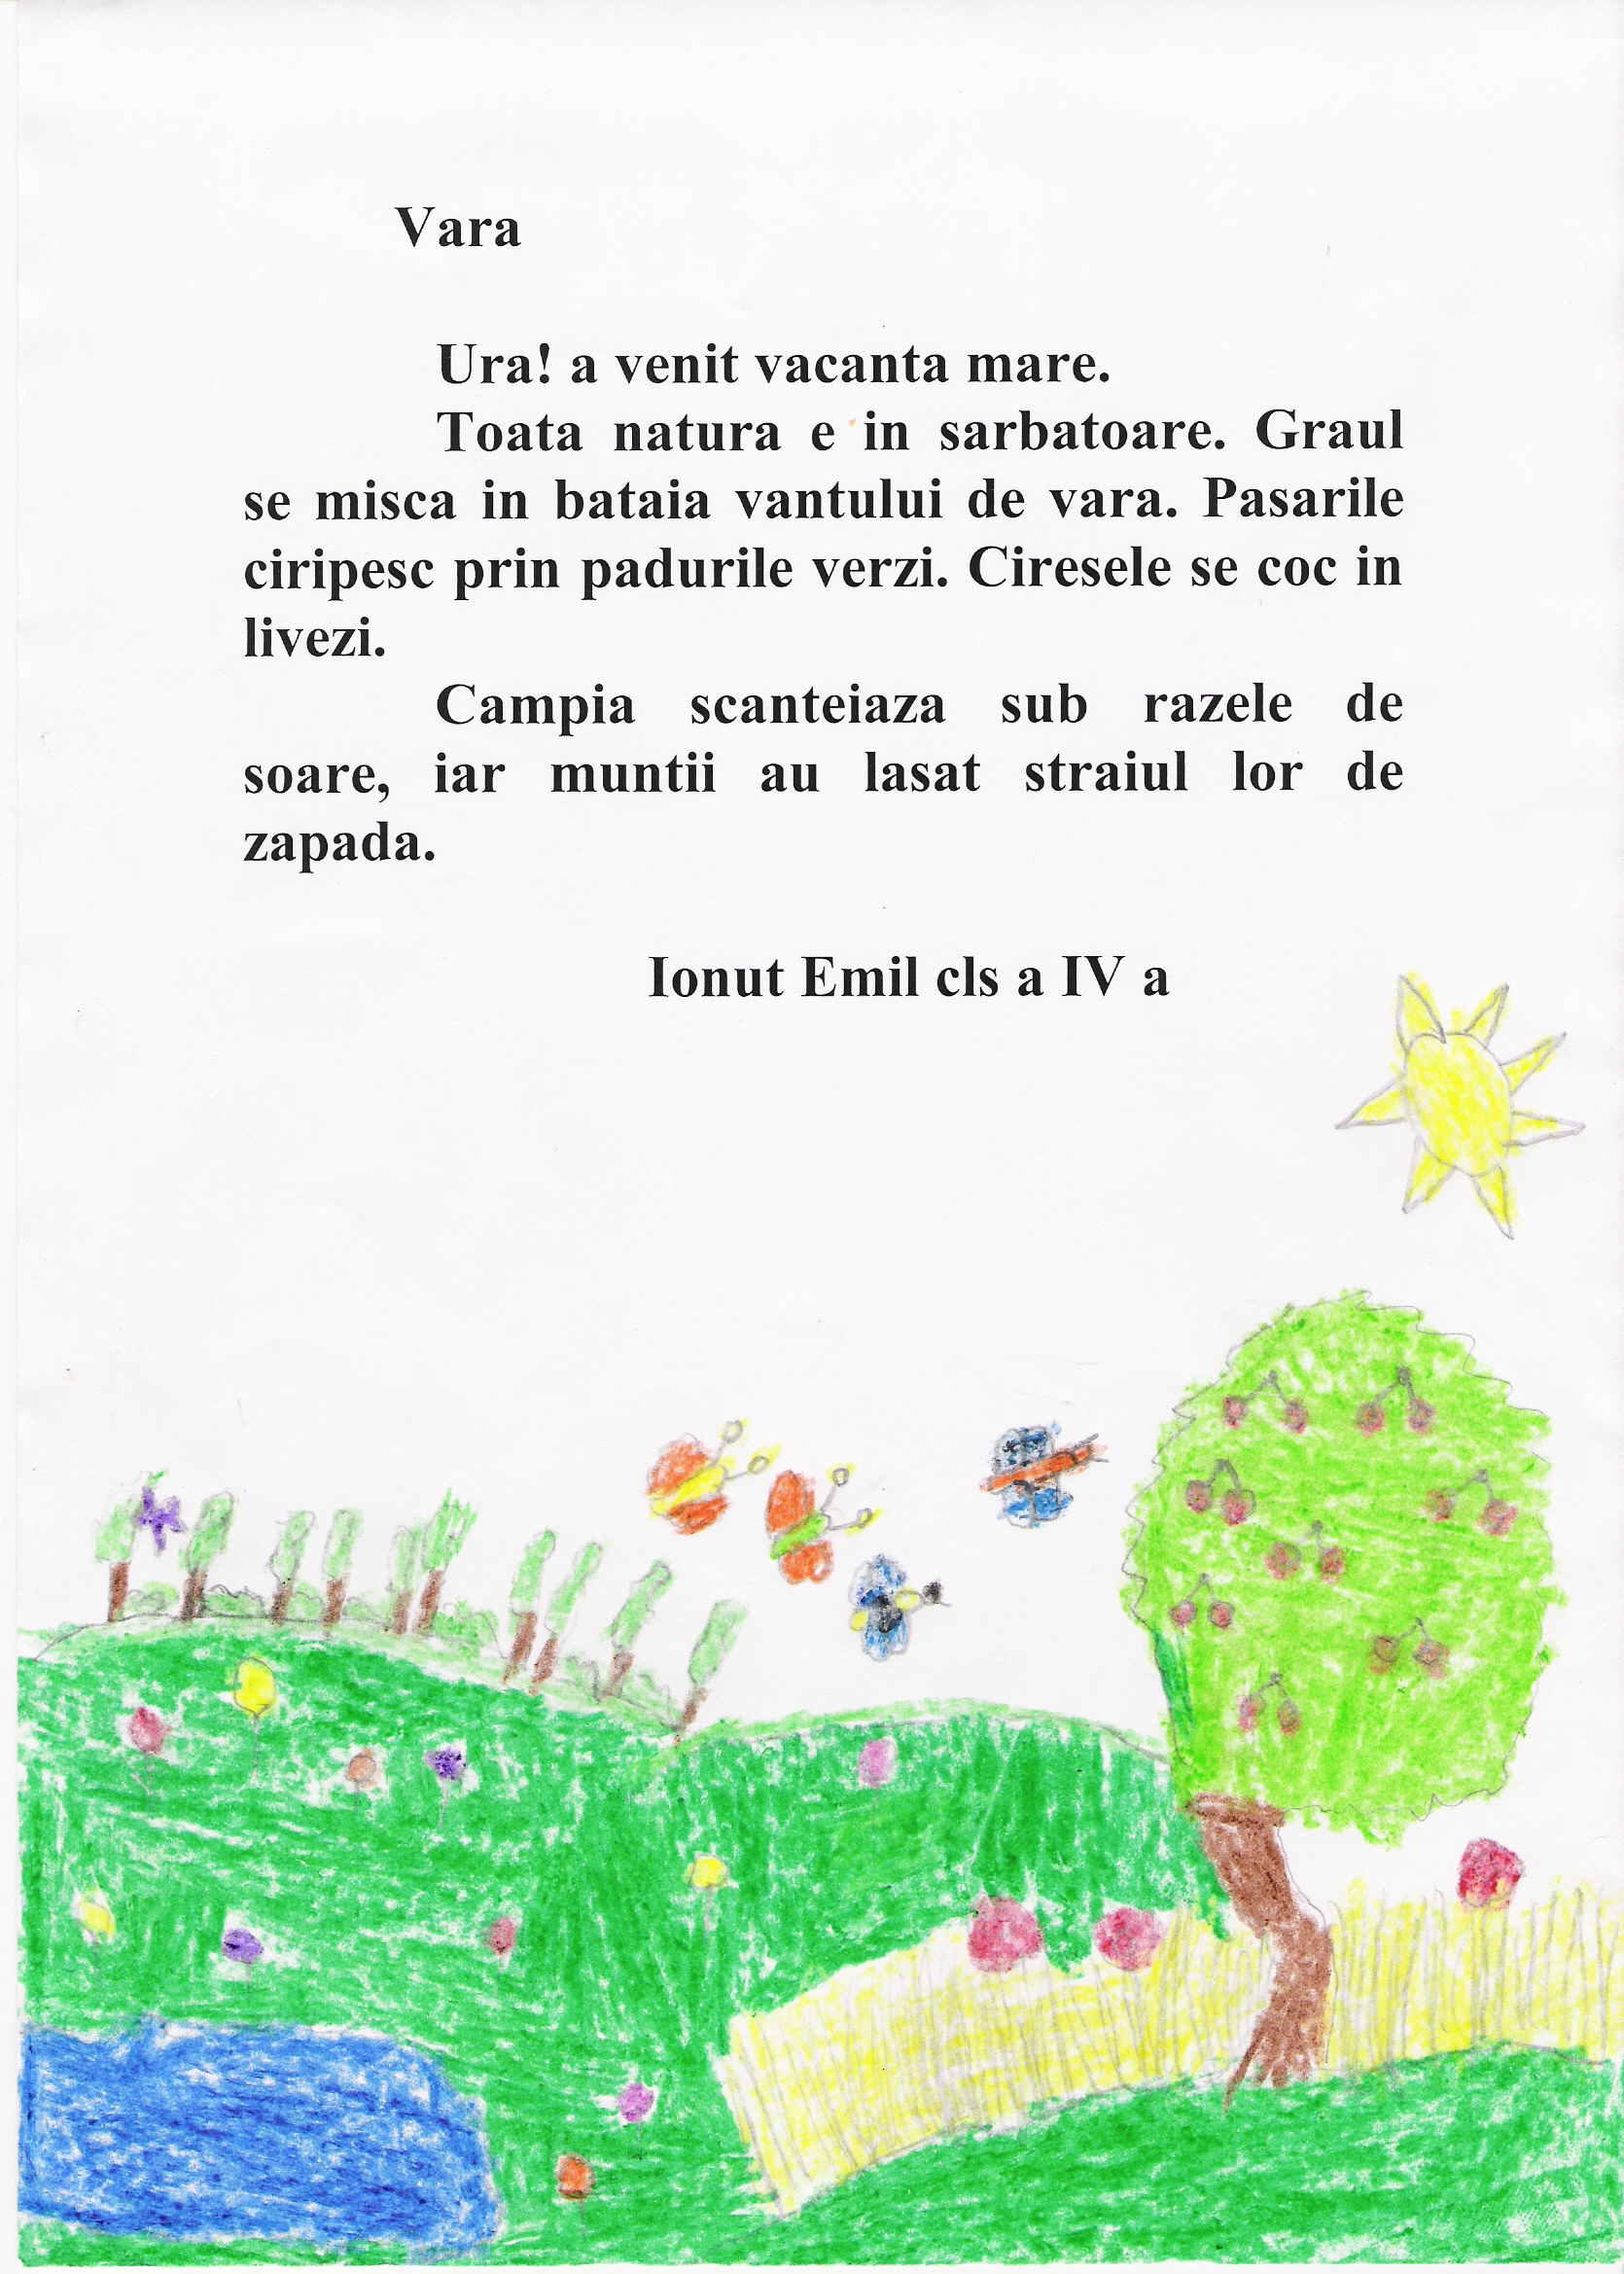 Vara
Ura! a venit vacanta mare.
Toata natura e in sarbatoare. Graul
se misca in bataia vantului de vara. Pasarile
ciripesc prin padurile verzi. Ciresele se coc in
livezi.
Campia scanteiaza sub razele de
soare, iar muntii au lasat straiul lor de
zapada.
Ionut Emil cls a IV a